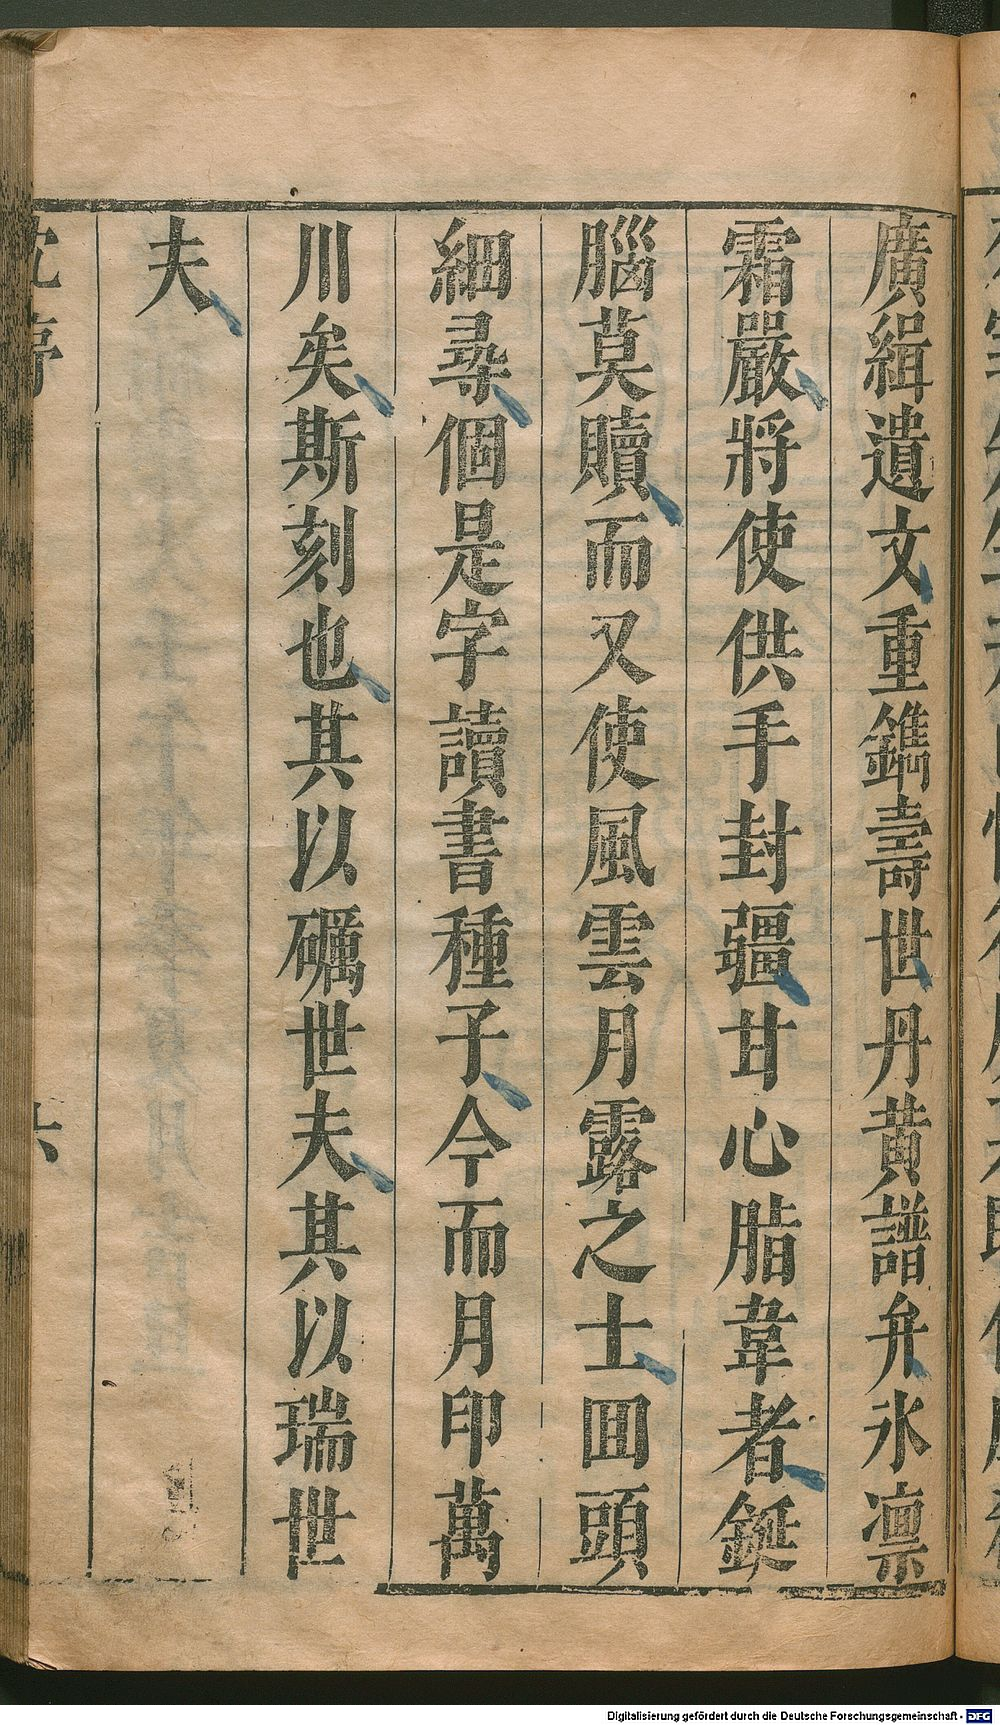 廣緝遺文重鐫壽世丹黃譜弁氷凛
霜嚴將使供手封疆甘心脂韋者鋌
腦莫贖而又使風雲月露之士囬頭
細尋個是字讀書種子今而月印萬
川矣斯刻也其以礪世夫其以瑞世
夫
六
Digitalisierung gefördert durch die Deutsche Forschungsgemeinschaft - DFG